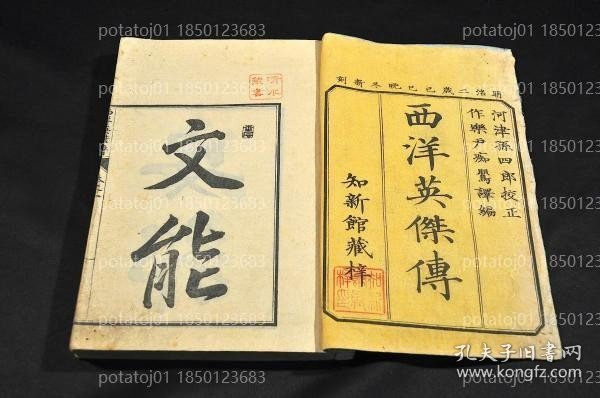 明治二歳己巳晩冬新刻
河津孫四郎校正
作樂戸痴鶯譯編
西洋英傑傳
知新館藏梓
文能
清水
藏書
potatoj01 1850123683
孔夫子旧书网
www.kongfz.com